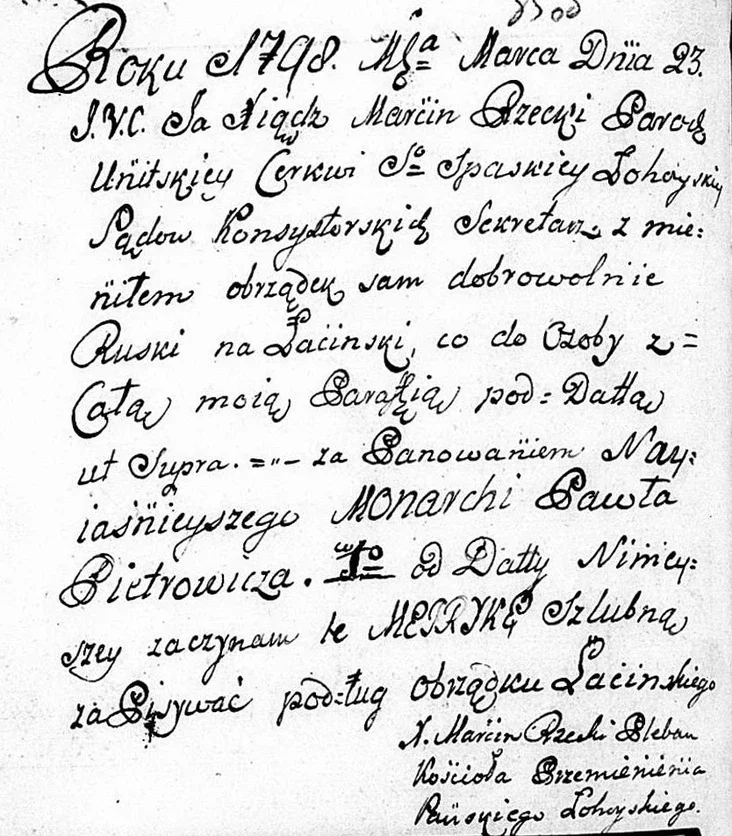 Roku 1798. Mca Marca Dnïa 23.
J.V.C. Ja Xiądz Marcïin Rzecki Paroch
Unïitskięy Cerkwi So Spaskiey Łohoyskiey
Sądow Konsystorskich Sekretarz. z mie:
nïłem obrządek sam dobrowolnie
Ruski na Łacïnski, co do Osoby z=
Całą moią Parafią pod= Dattą
ut Supra. za Panowanïem Nay:
iasnïeyszego MOnarchi Pawła
Pietrowicza. od Datty Ninïey:
szey zaczynam te METRYKĘ Szlubną
zaPisywać pod=ług obrządku Łacïnskiego
X. Marcïn Rzecki Pleban
Koscioła Przemienïenïa
Panskiego Łohoyskiego.